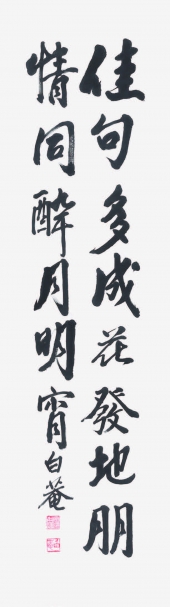 佳句多成花發地朋
情同醉月明宵
白菴